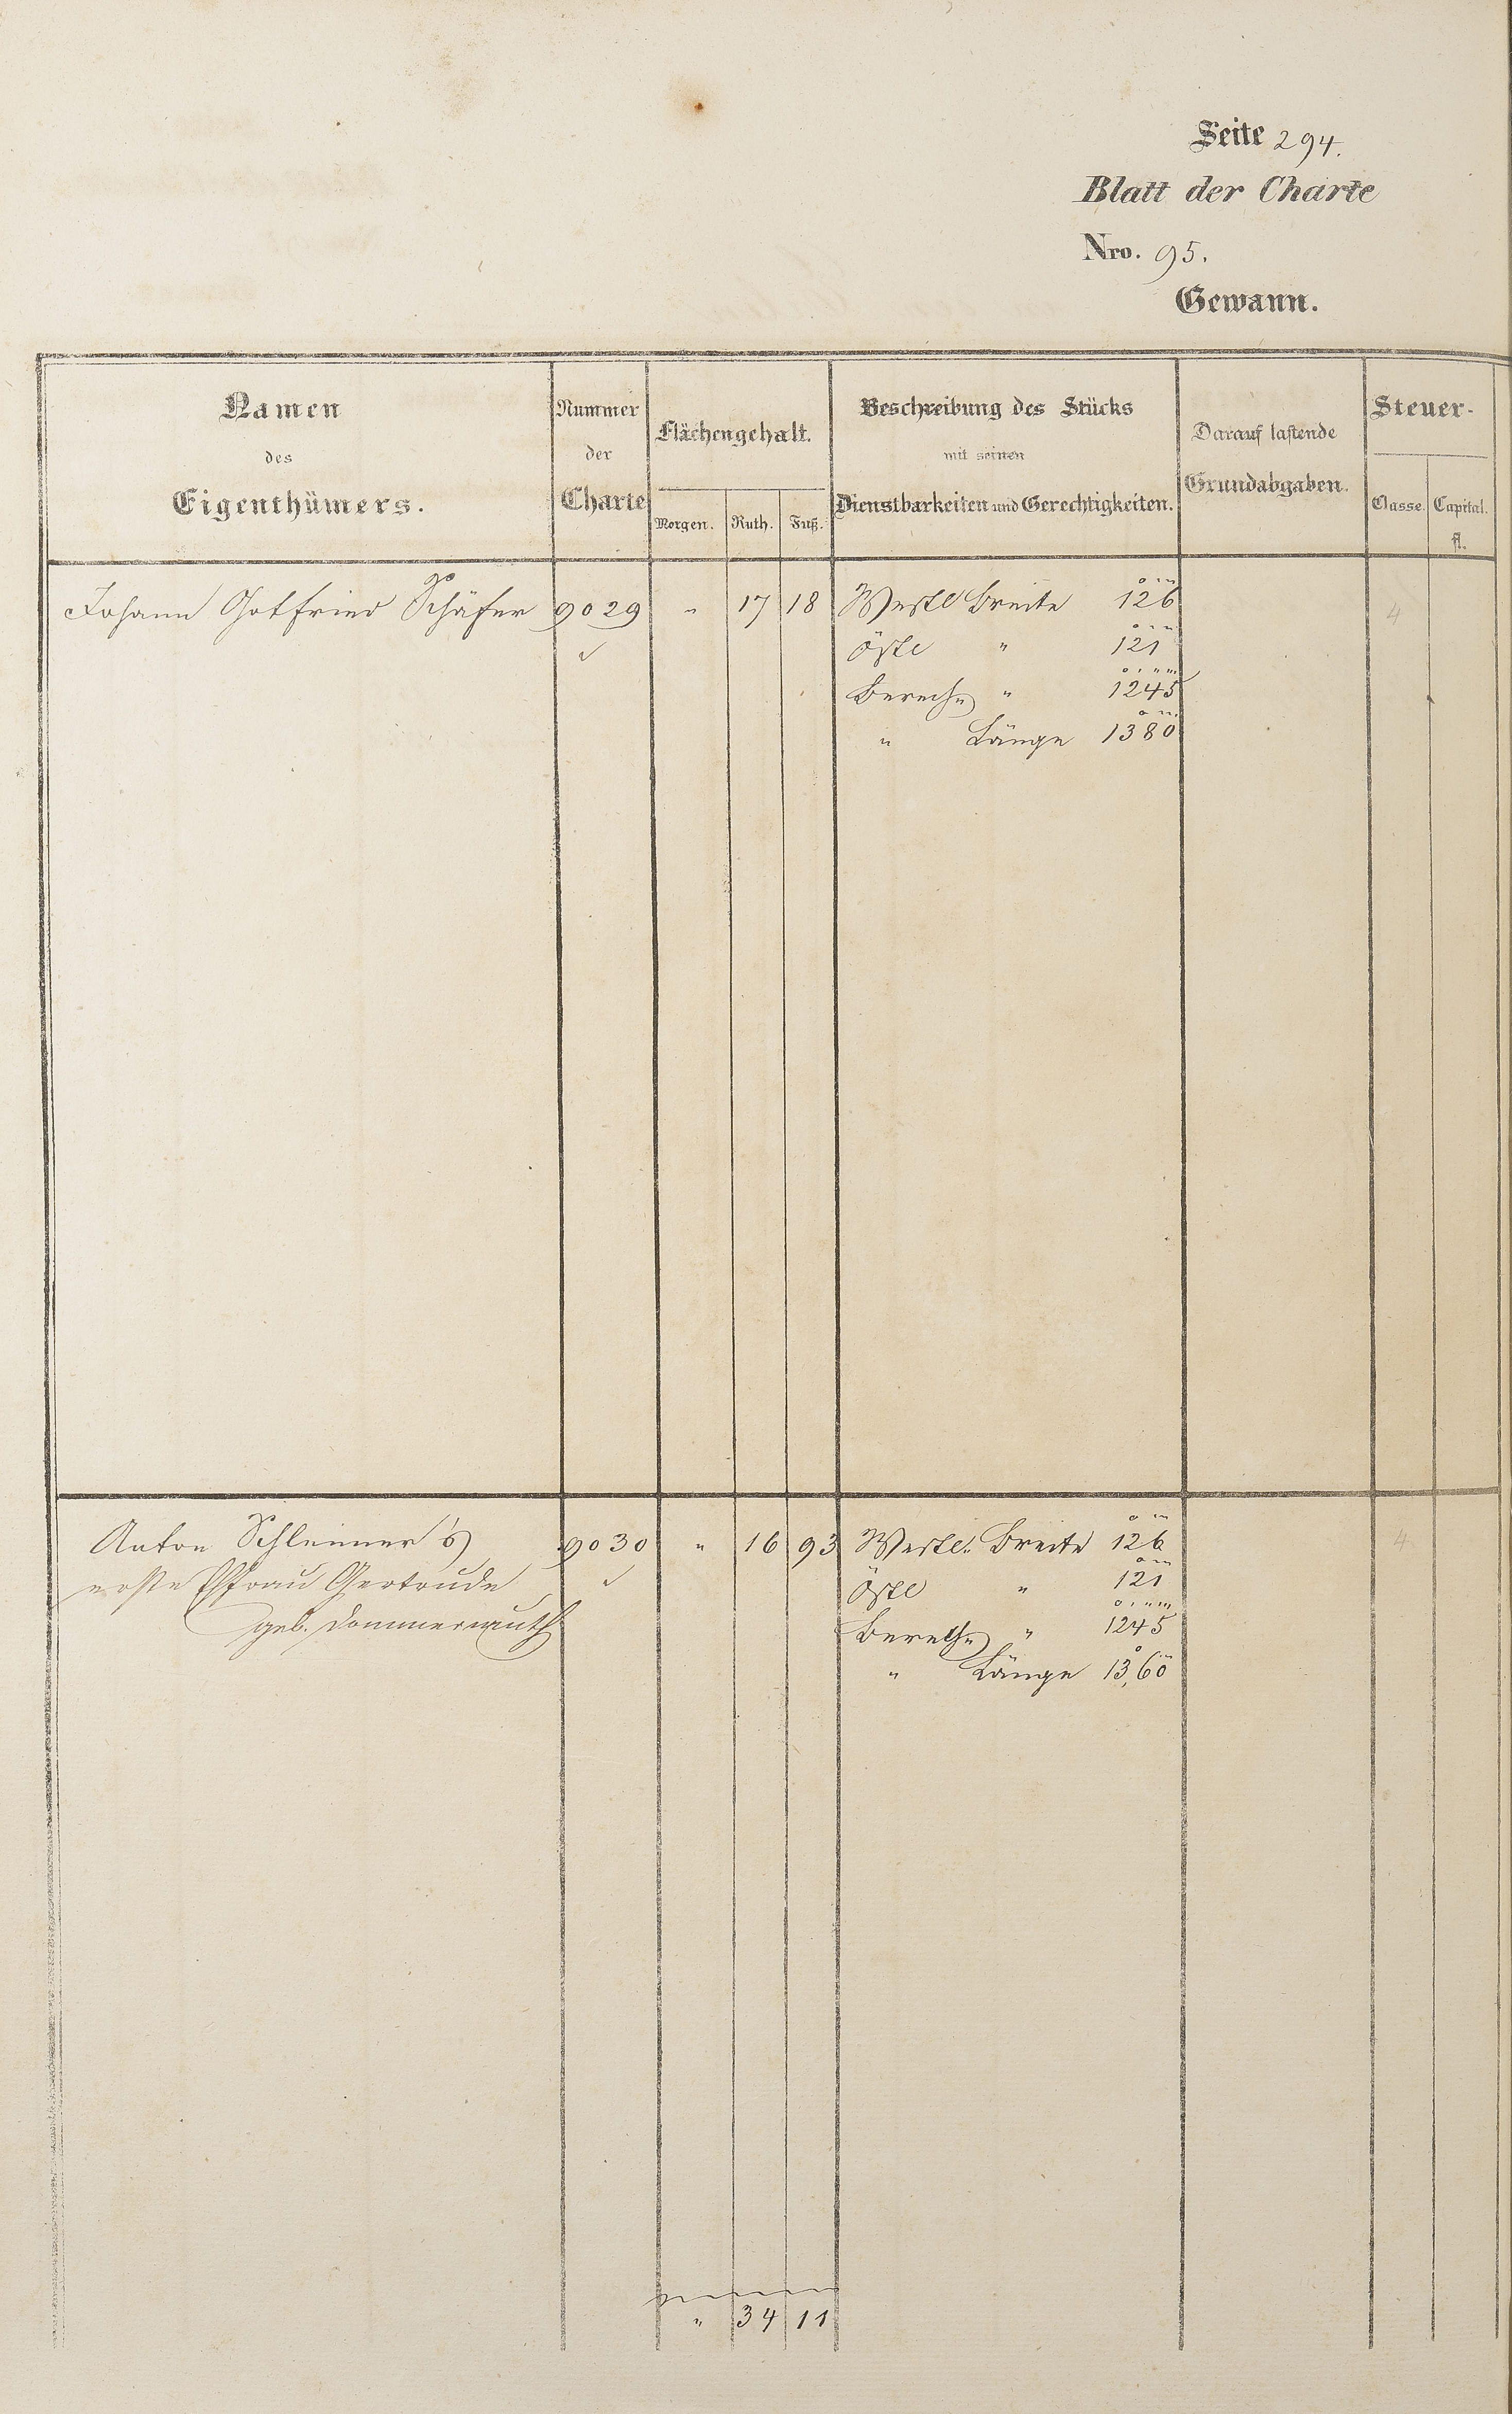 Seite 294.
Blatt der Charte
Nro. 95.
Gewann.
Namen des Eigenthümers.
Nummer der Charte
Flächengehalt.
Morgen. Ruth. Fuß.
Beschreibung des Stücks
mit seinen
Dienstbarkeiten und Gerechtigkeiten.
Darauf lastende
Grundabgaben.
Steuer-
Classe. Capital.
fl.
Johann Gotfried Schäfer 9029 " 17 18 Westl Breite 126 4
östl " 121
Berechn " 1245
" Länge 1380
Anton Schleimer's 9030 " 16 93 Westl. Breite 126 4
erste Ehfrau Gertrude östl " 121
geb. Dommermuth Berechn " 1245
" Länge 13,60
" 34 11